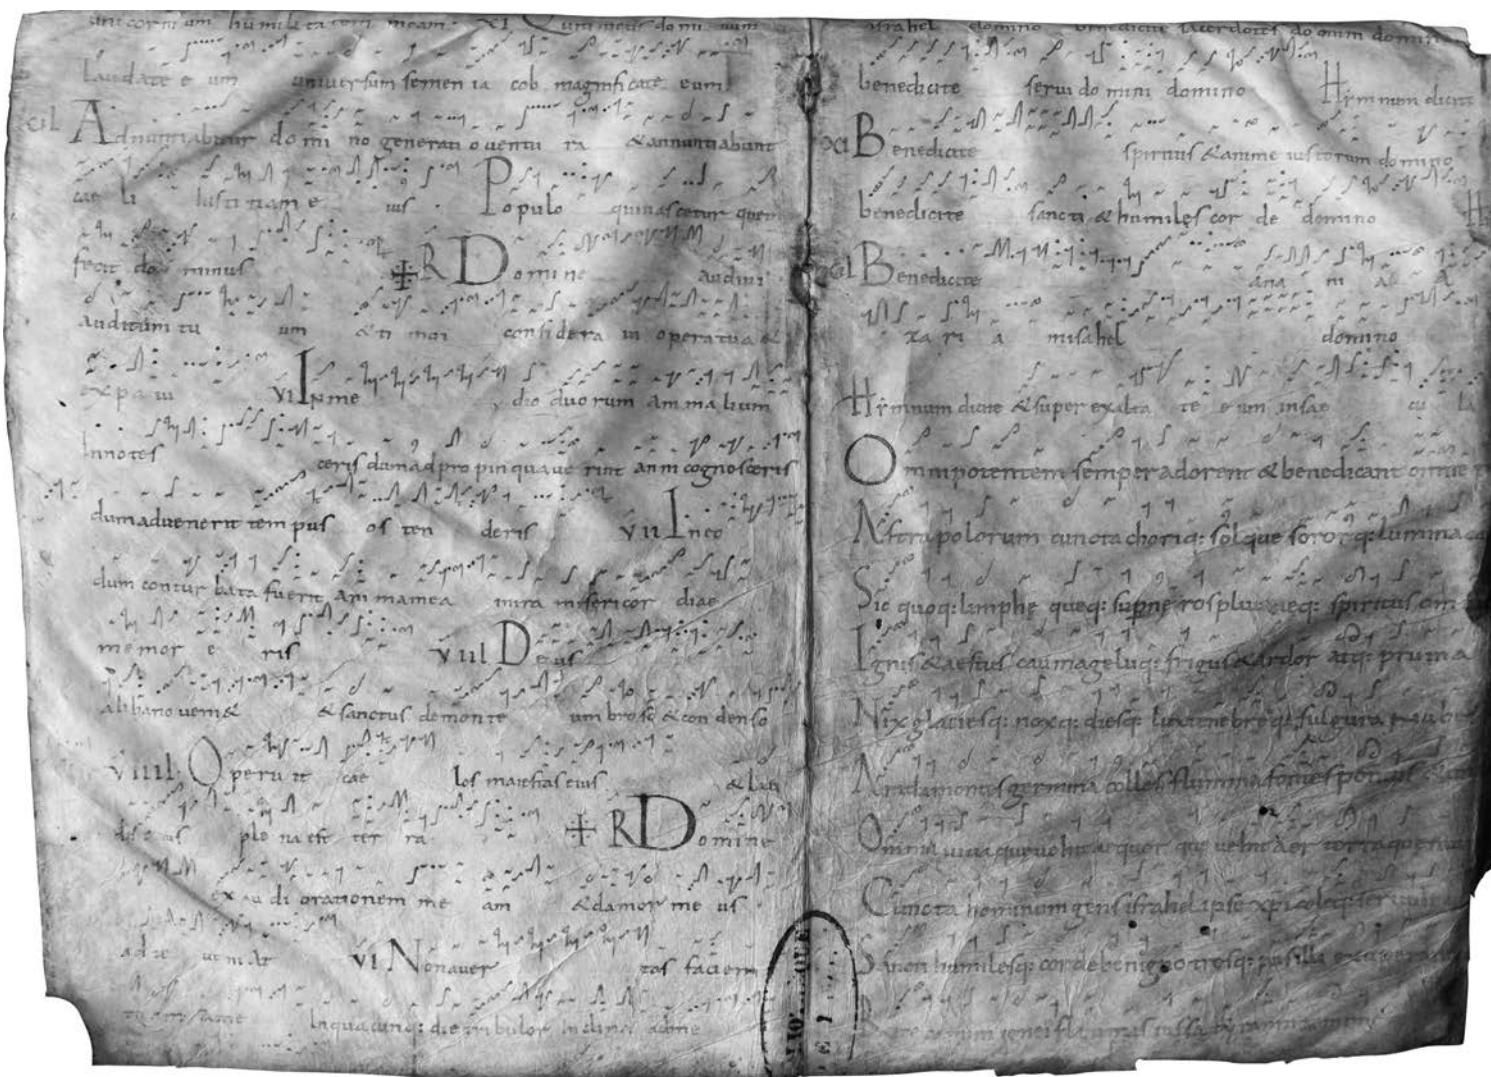 humilitatem meam · XI Qui meus dominum
laudate eum universum semen iacob magnificate eum
CIL Adnuntiabitur domino generatio ventura & annuntiabunt
caeli iustitiam eius · Populo qui nascetur quem
fecit dominus ✠ R Domine audivi
auditum tuum & timui consideravi opera tua &
expavi VI In medio duorum animalium
Innotesceris dum adpropinquaverint anni cognosceris
dum advenerit tempus ostenderis VII In eo
dum conturbata fuerit anima mea in ira misericordiae
memor eris VIII Deus
alibano veni& & sanctus demonte umbroso & condenso
VIIII Operuit caelos maiestas eius & lau
dis eius plena est terra ✠ R Domine
exaudi orationem meam & clamor meus
ad te veniat VI Non avertas faciem
tuam a me Inquacunq: die tribulor inclina ad me
israhel domino benedicite sacerdotes domini domino
benedicite servi domini domino Hymnum dicite
XI Benedicite spiritus & animae iustorum domino
benedicite sancti & humiles corde domino H
CIL Benedicite anania A
zaria misahel domino
Hymnum dicite & superexaltate eum insaecula
Omnipotentem semper adorent & benedicant omne
Astra polorum cuncta choriq: solque sororq: lumina
Sic quoq: limphe queq: supne rospluvieq: spiritus
Ignis & aestus cauma geluq: frigus & ardor atq: pruina
Nix glaciesq: noxq: diesq: lux tenebreq: fulgura nubes
Arida montes germina colles flumina fontes pontus &
Omnia viva que vehit aequor que vehit aer terraque
Cuncta hominum gens israhel ipse xpicoleq:
Sancti humilesq: corde benigno tresq: pusilli